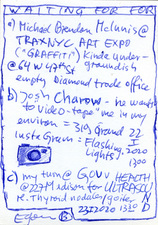 WAITING FOR FOR
a) Michael Brendan McInnis @
TRAXNYC ART EXPO
("GRAFFITI") kinda under-
groundish
@ 64 W 47th St
empty diamond trade office
b) Josh Charow - he wants
to video-tape "me in my
environ" = 319 Ground 22
Insta Gram = Flashing I
Lights 2020
1300
c) my turn @ Gouv HEALTH
@ 227 Madison for ULTRASOUND
re. Thyroid nodules/goiter
23 I 2020 1330